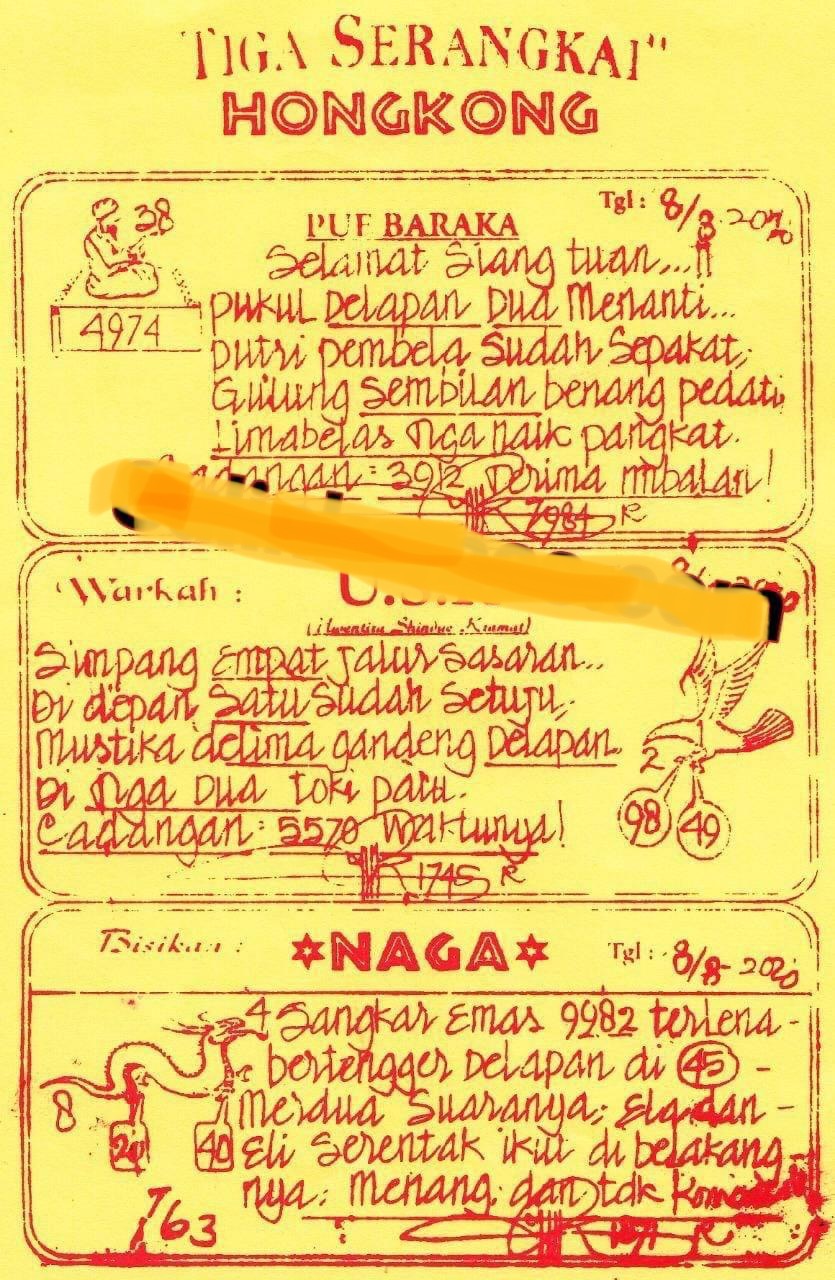 TIGA SERANGKAI"
HONGKONG
38
4974
PUF BARAKA
Tgl : 8/8 2020
Selamat Siang tuan...!!
pukul Delapan Dua Menanti...
putri pembela Sudah Sepakat,
Gulung Sembilan benang pedati,
Limabelas tiga naik pangkat.
Cadangan: 3912 Derima mbalan!
7984 R
Warkah :
Simpang Empat jalur Sasaran...
Di depan Satu Sudah Setuju,
Mustika delima gandeng Delapan.
Di tiga Dua toki palu.
Cadangan: 5570 Waktunya!
1745 R
2
98 49
Bisikan :
NAGA
Tgl : 8/8- 2020
4 Sangkar Emas 9982 terlena -
bertengger Delapan di 45 -
Merdua Suaranya; Ela dan -
Eli Serentak ikut di belakang-
nya: Menang dan tdk
8
20 40
763
R